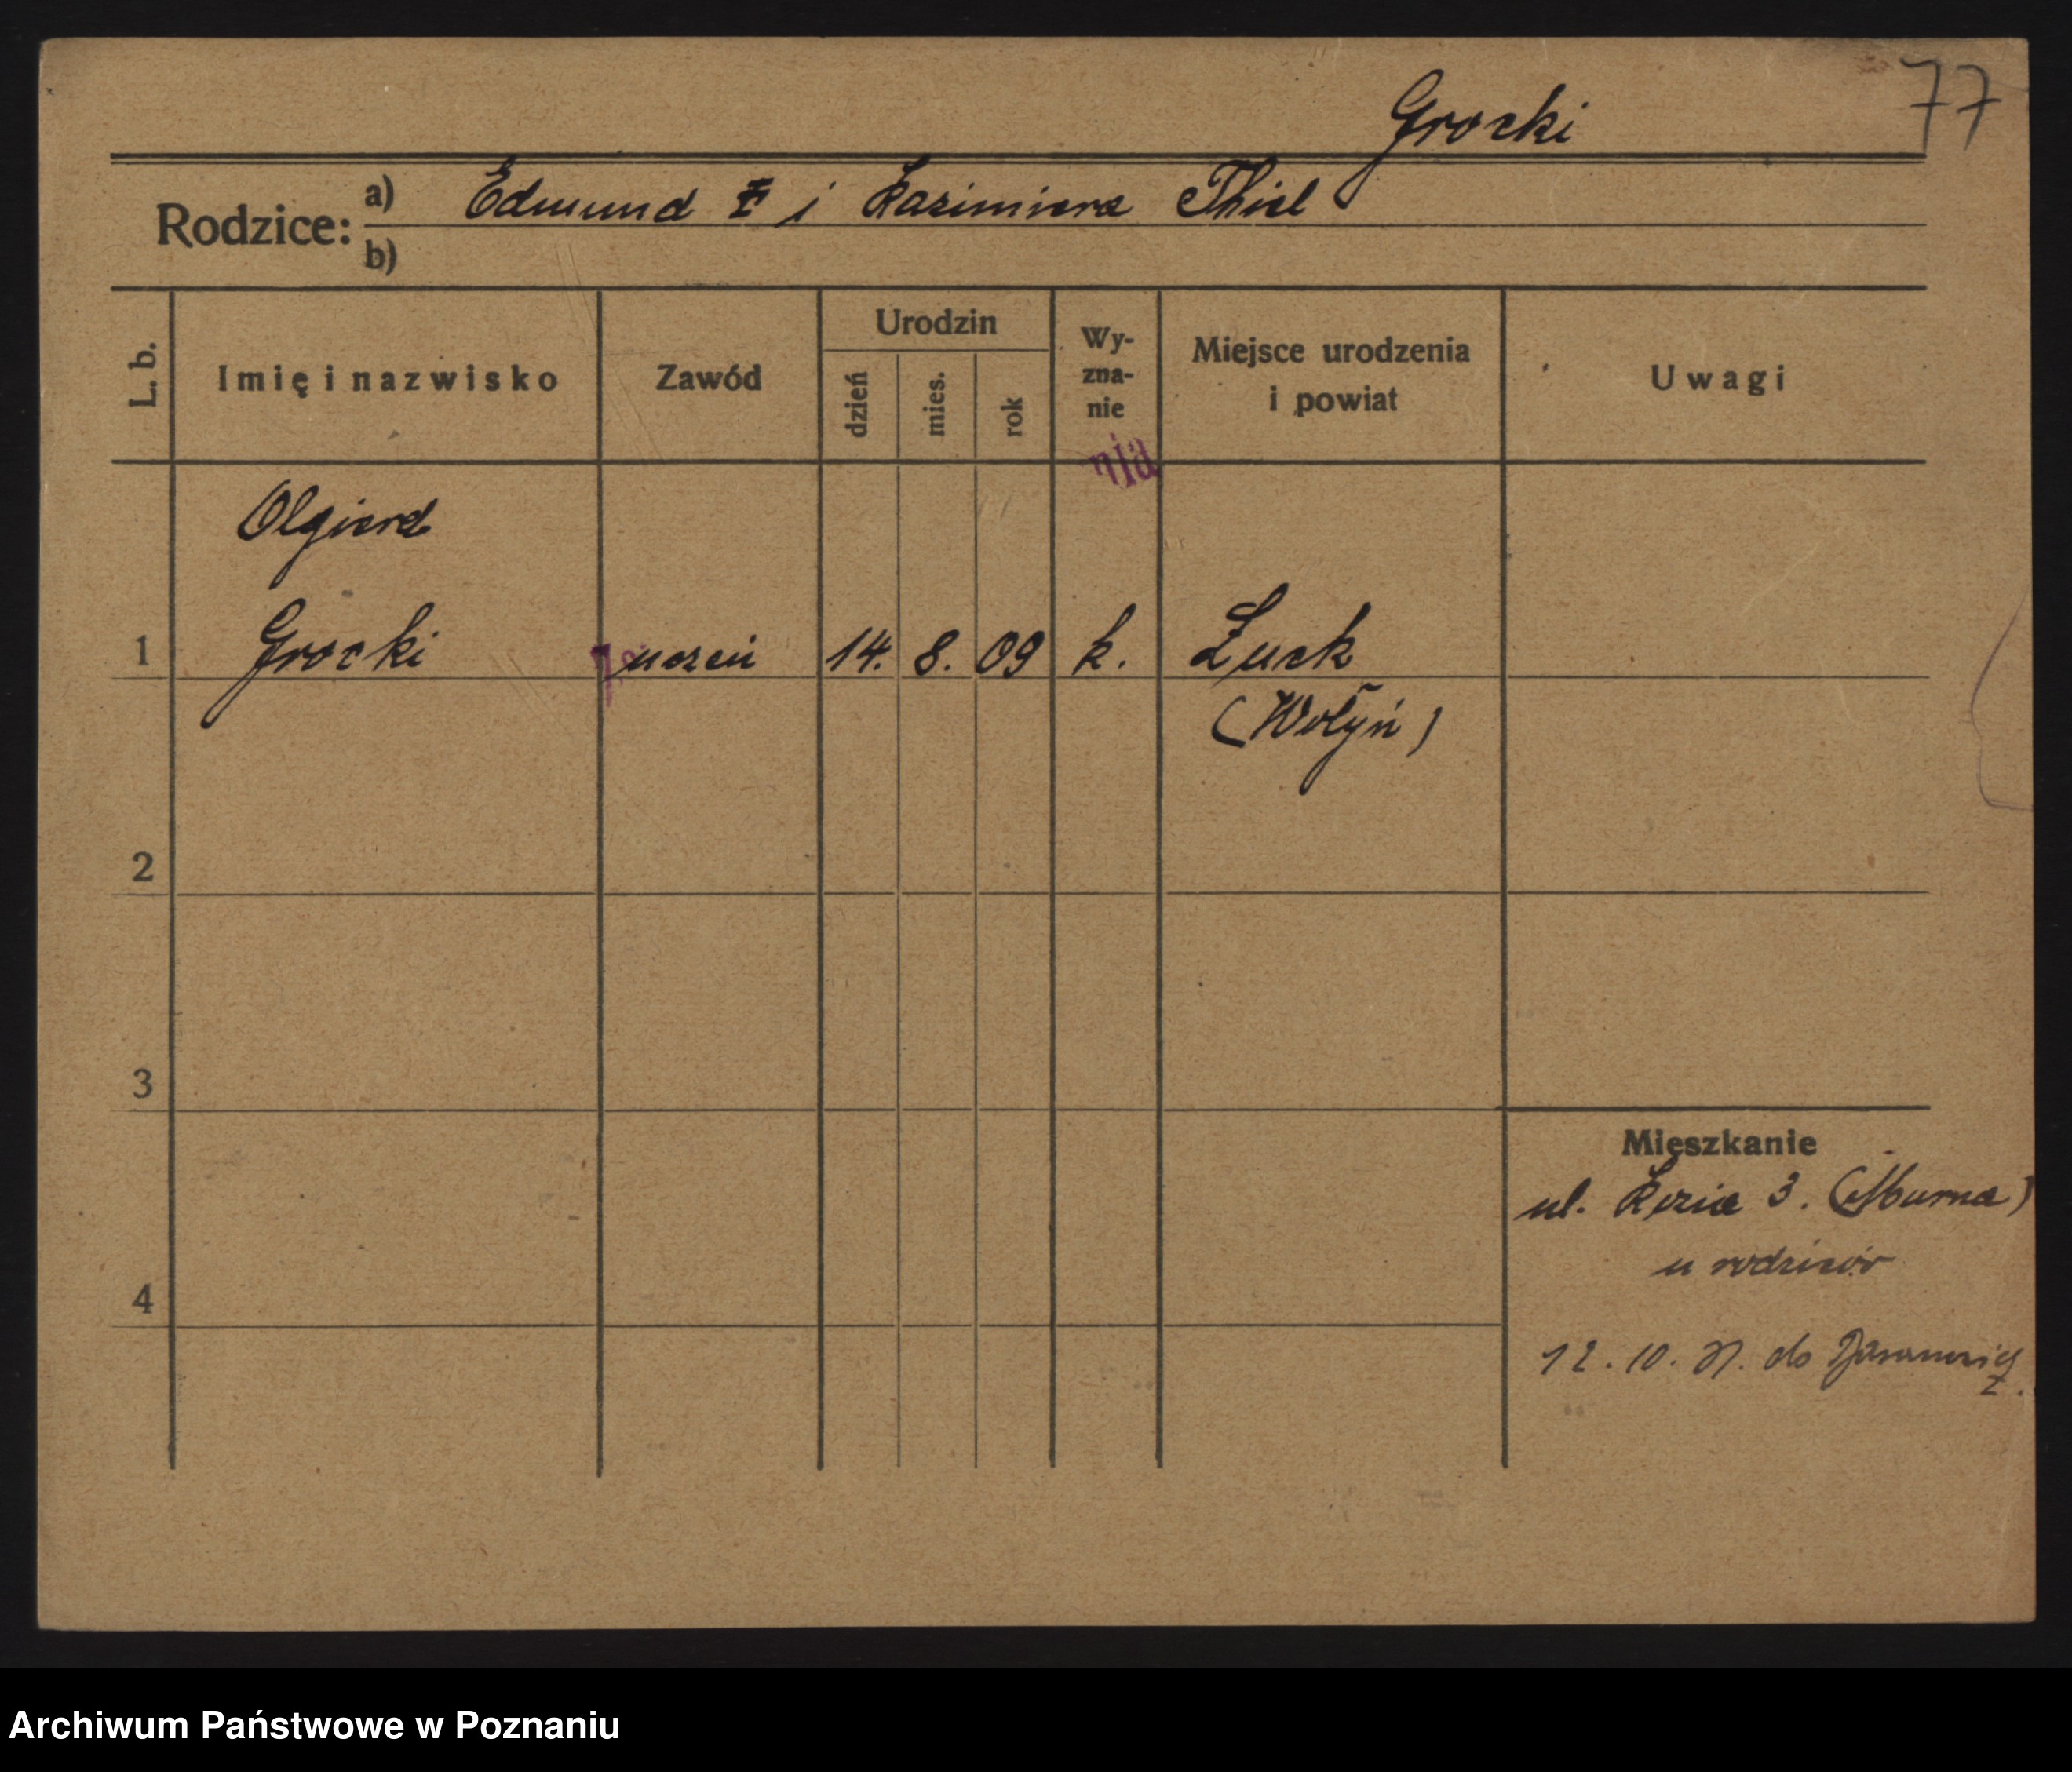 77
Grocki
Rodzice:
a) Edmund i Kazimiera Thiel
b)
L. b.
Imię i nazwisko
Zawód
Urodzin
dzień
mies.
rok
Wy-
zna-
nie
Miejsce urodzenia
i powiat
Uwagi
nia
Olgierd
1 Grocki uczeń 14. 8. 09 k. Łuck
(Wołyń)
2
3
Mieszkanie
ul. 3. (Murna)
u rodziców
4
12. 10. do
Archiwum Państwowe w Poznaniu